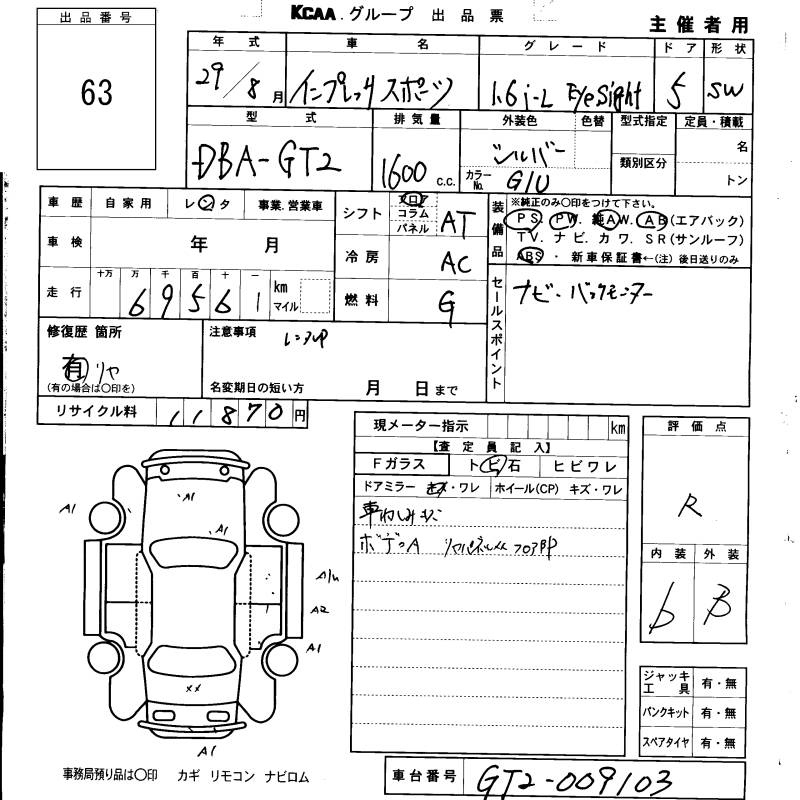 KCAA.グループ 出品票
主催者用
出品番号
63
年式 車名 グレード ドア 形状
29/8月 インプレッサ スポーツ 1.6i-L EyeSight 5 SW
型式 排気量 外装色 色替 型式指定 定員・積載
DBA-GT2 1600 c.c. シルバー 名
カラーNo. G1U 類別区分 トン
車歴 自家用 レンタ 事業.営業車
車検 年 月
走行 十万 万 千 百 十 一
6 9 5 6 1 km マイル
シフト フロア コラム パネル AT
冷房 AC
燃料 G
装備品 ※純正のみ〇印をつけて下さい。
PS. PW. 純AW. AB(エアバック)
TV. ナビ. カワ. SR(サンルーフ)
ABS ・ 新車保証書←(注)後日送りのみ
セールスポイント
ナビ・バックモニター
修復歴 箇所
有 リヤ
(有の場合は〇印を)
注意事項 レンタUP
名変期日の短い方 月 日まで
リサイクル料 11870円
現メーター指示 km
【査定員記入】
Fガラス トビ石 ヒビワレ
ドアミラー キズ・ワレ ホイール(CP) キズ・ワレ
ボデーA リヤパネル
評価点
R
内装 外装
b B
A1
A1
A1
A2
A1
××
A1
ジャッキ工具 有・無
パンクキット 有・無
スペアタイヤ 有・無
事務局預り品は〇印 カギ リモコン ナビロム
車台番号 GT2-009103